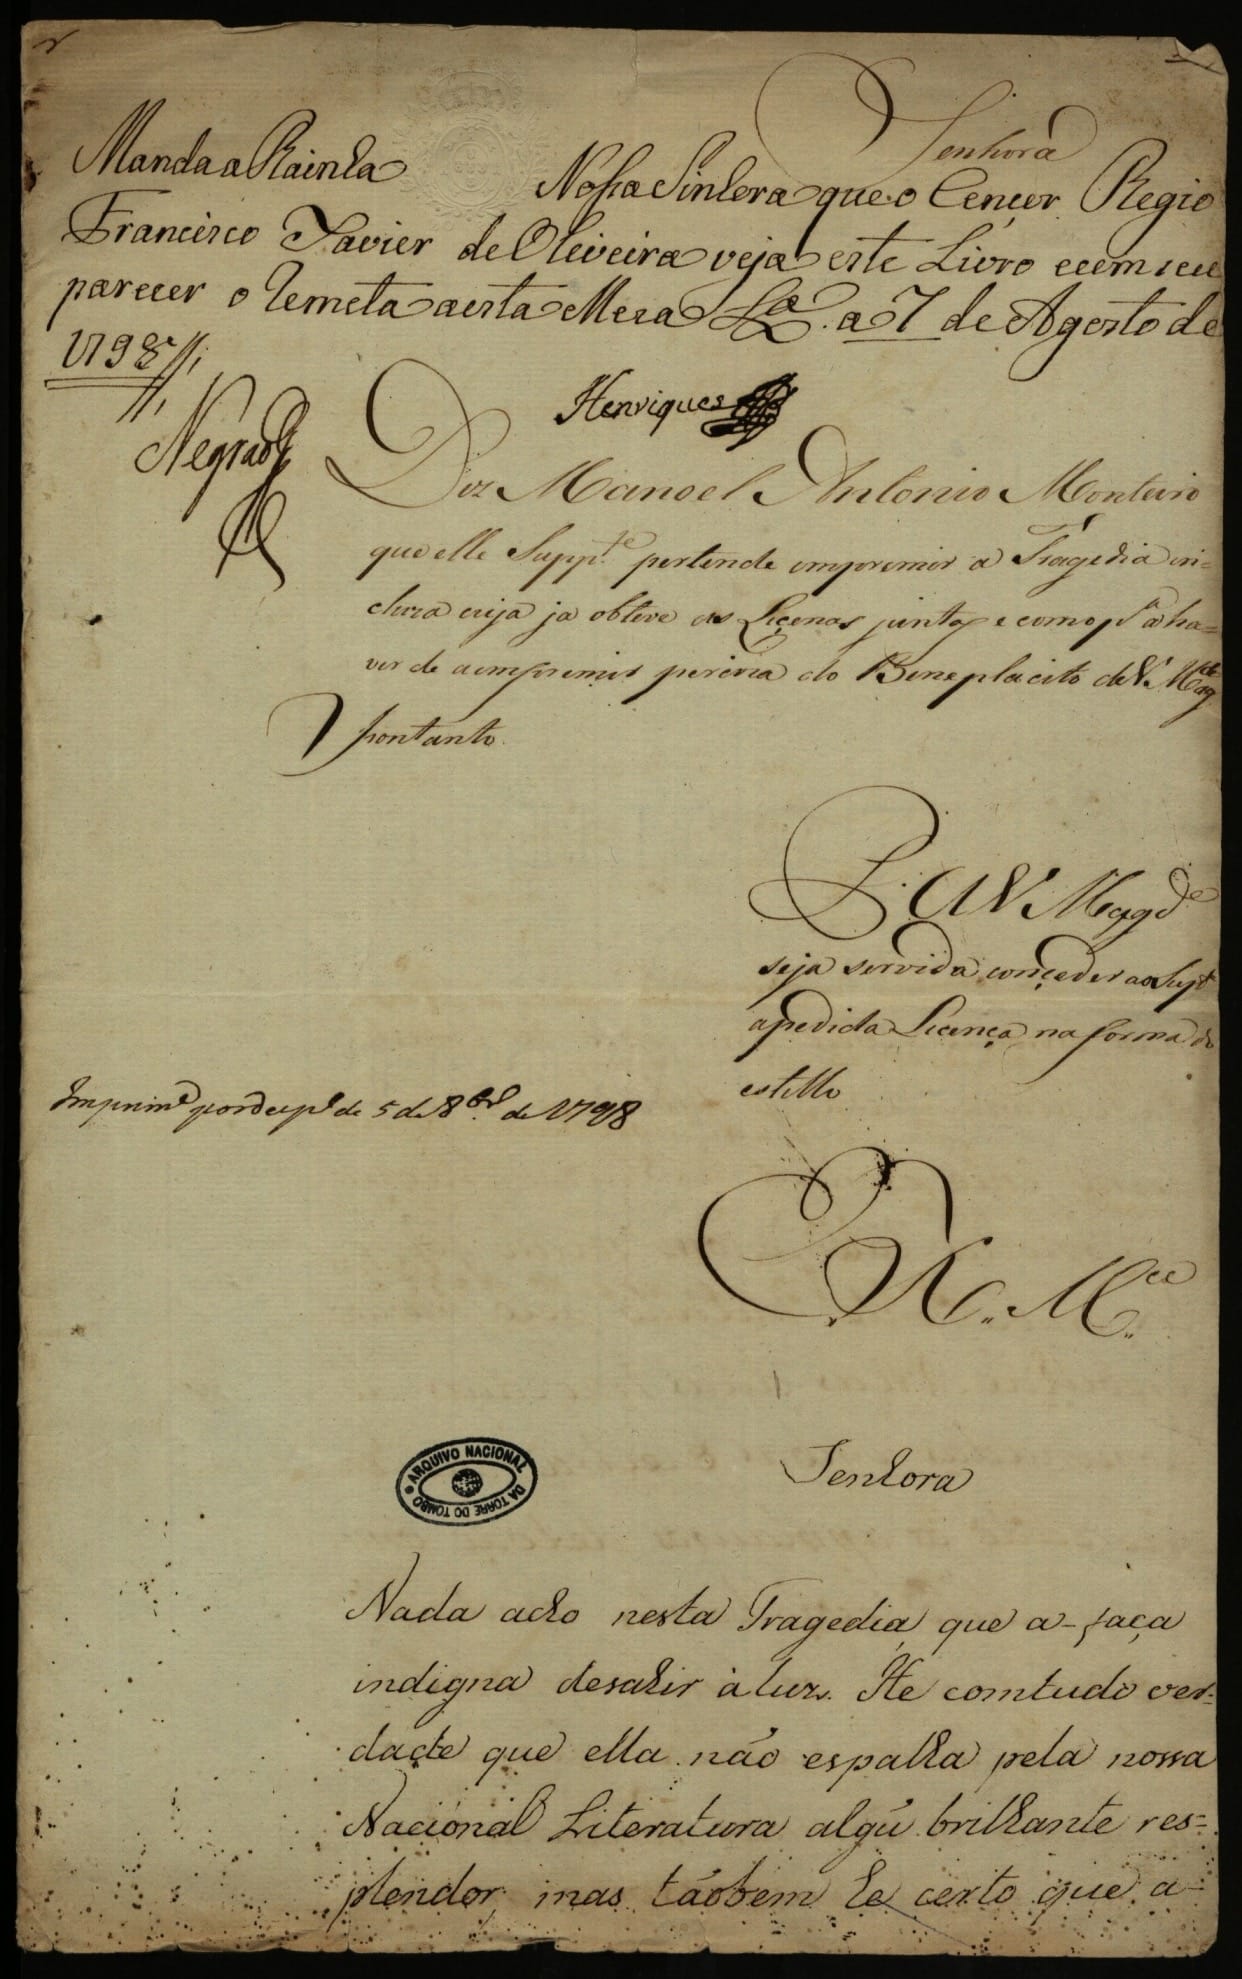 Senhora
Manda a Rainha Nossa Sinhora que o Cençor Regio
Francisco Xavier de Oliveira veja este Livro e com seu
parecer o Remeta a esta Meza Lxa. a 7 de Agosto de
1798
Henriques
Negrao
Diz Manoel Antonio Monteiro
que elle Supp.te pertende imprimir a Tragedia in=
cluza cuja ja obteve as Liçenas juntas e como p.a a ha=
ver de a imprimir perciza do Beneplacito de V. Mag.de
portanto
P. A V. Magd.e
seja servida conçeder ao Sup.te
a pedida Licença na forma do
estillo
E. R. M.ce
Imprim.e por desp.o de 5 de 8.bro de 1798
ARQUIVO NACIONAL
DA TORRE DO TOMBO
Senhora
Nada acho nesta Tragedia que a-faça
indigna desahir à luz. He comtudo ver-
dade que ella não espalha pela nossa
Nacional Literatura algũ brilhante res=
plendor; mas tãobem he certo que a-